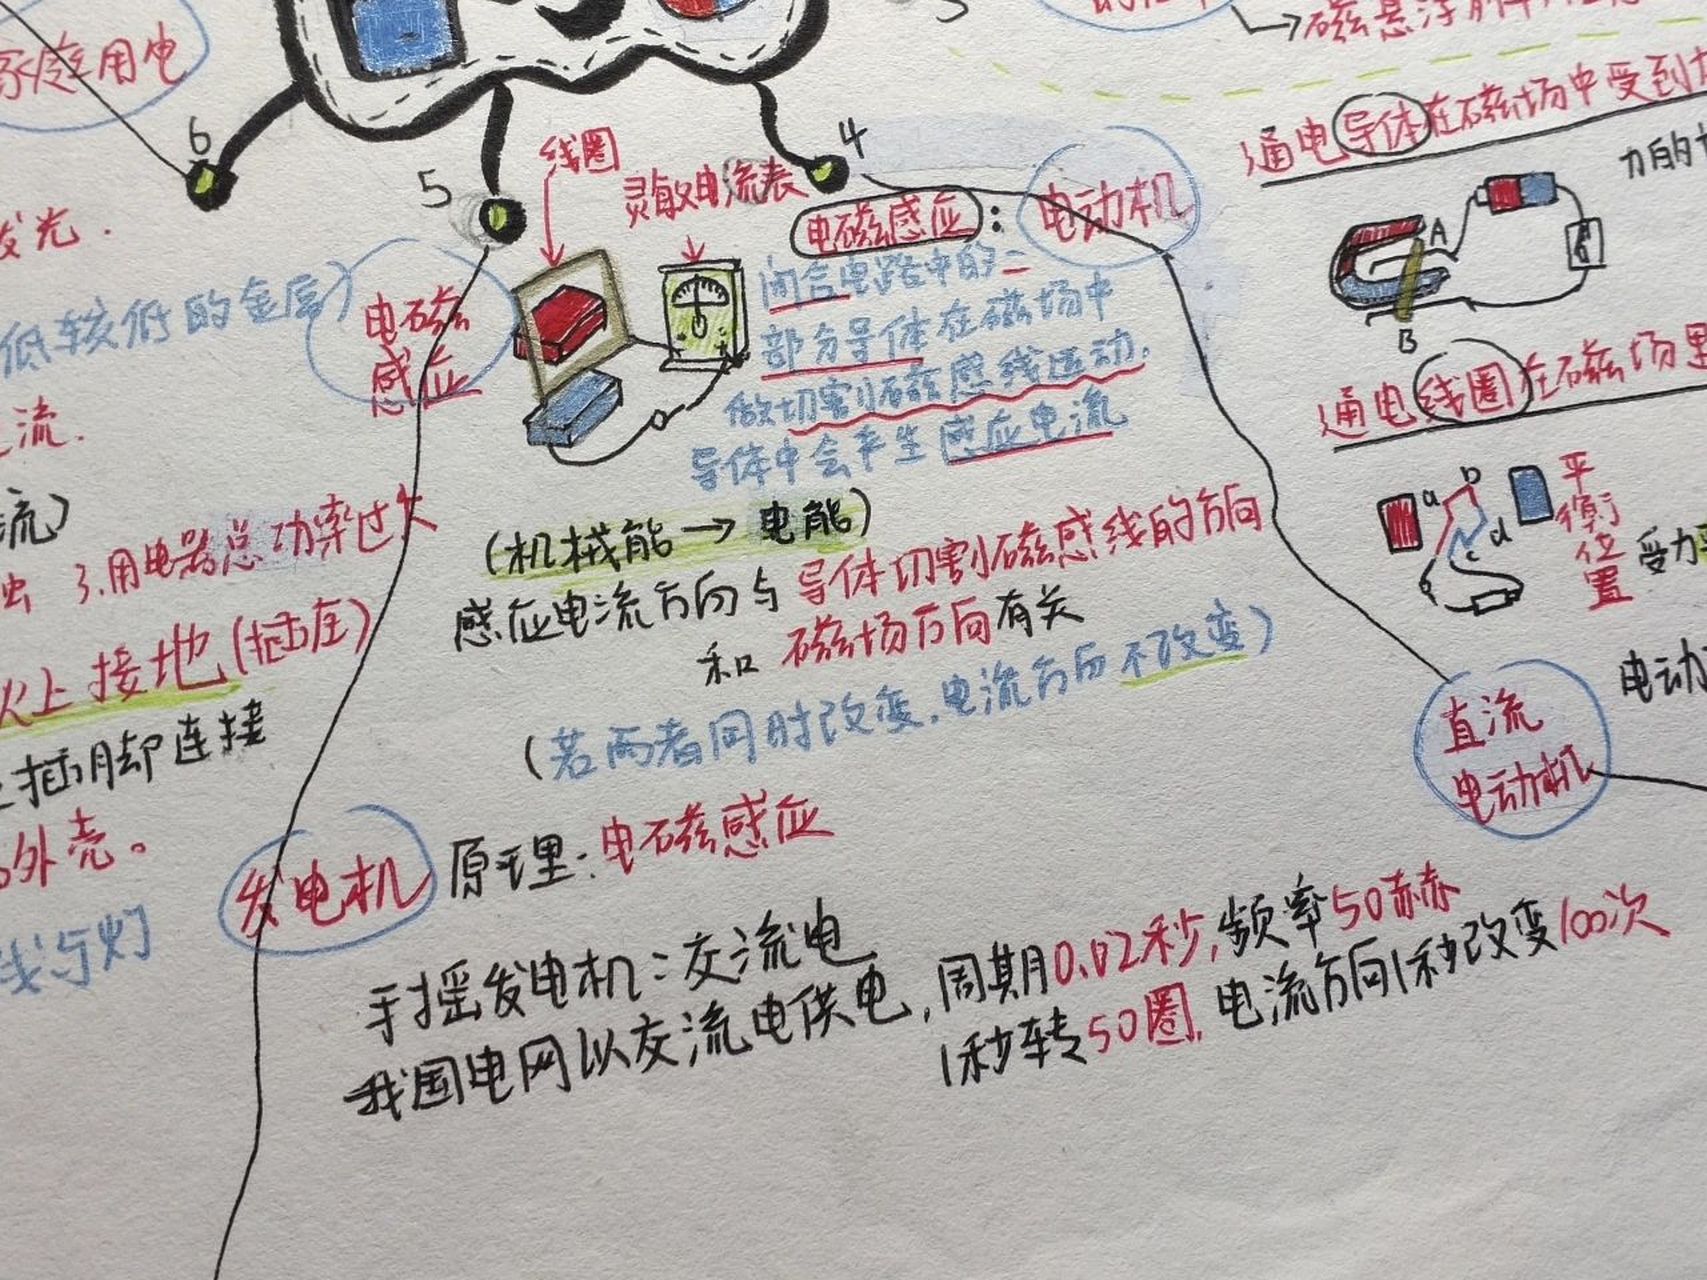 家庭用电
6
5
4
线圈
灵敏电流表
电磁感应:
电动机
电磁
感应
闭合电路中的一
部分导体在磁场中
做切割磁感线运动.
导体中会产生感应电流
(机械能→电能)
感应电流方向与导体切割磁感线的方向
和磁场方向有关
(若两者同时改变,电流方向不改变)
发电机
原理:电磁感应
手摇发电机:交流电
我国电网以交流电供电,周期0.02秒,频率50赫赫
1秒转50圈,电流方向1秒改变100次
发光.
低较低的金属)
流.
流)
3.用电器总功率过大
火上接地(插座)
插脚连接
外壳。
线与灯
磁悬浮
通电导体在磁场中受到
力的
A
B
通电线圈在磁场里
a
b
c
d
平
衡
位
置
受力
电动
直流
电动机